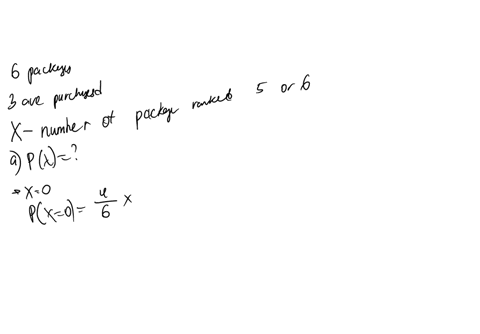 6 packages
3 are purchased
X - number of package ranked 5 or 6
a) P(X)=?
X=0
P(X=0)= 4/6 x